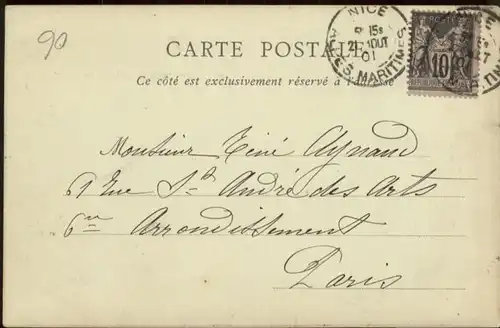 90
CARTE POSTALE
Ce côté est exclusivement réservé à l'adresse
NICE
21 AOUT
01
ALPES MARITIMES
10
Monsieur René Aynaud
61 Rue St André des Arts
6me Arrondissement
Paris